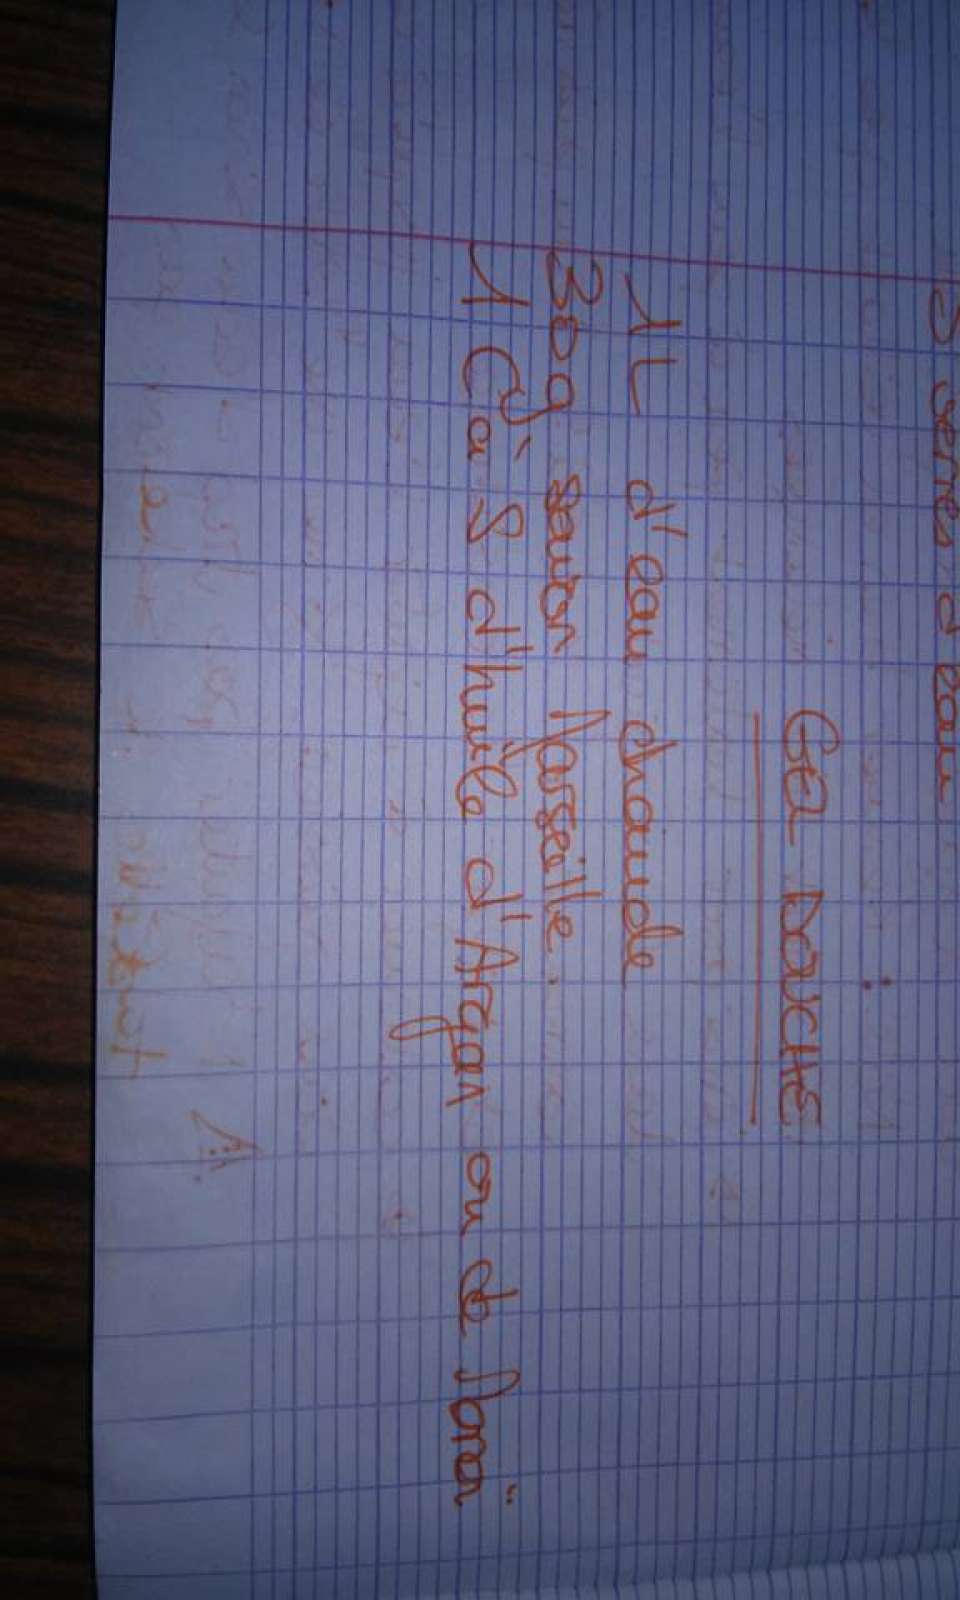 5 verres d'eau
GEL DOUCHE
1L d'eau chaude
30g savon Marseille.
1 Cà S d'huile d'Argan ou de Monoï